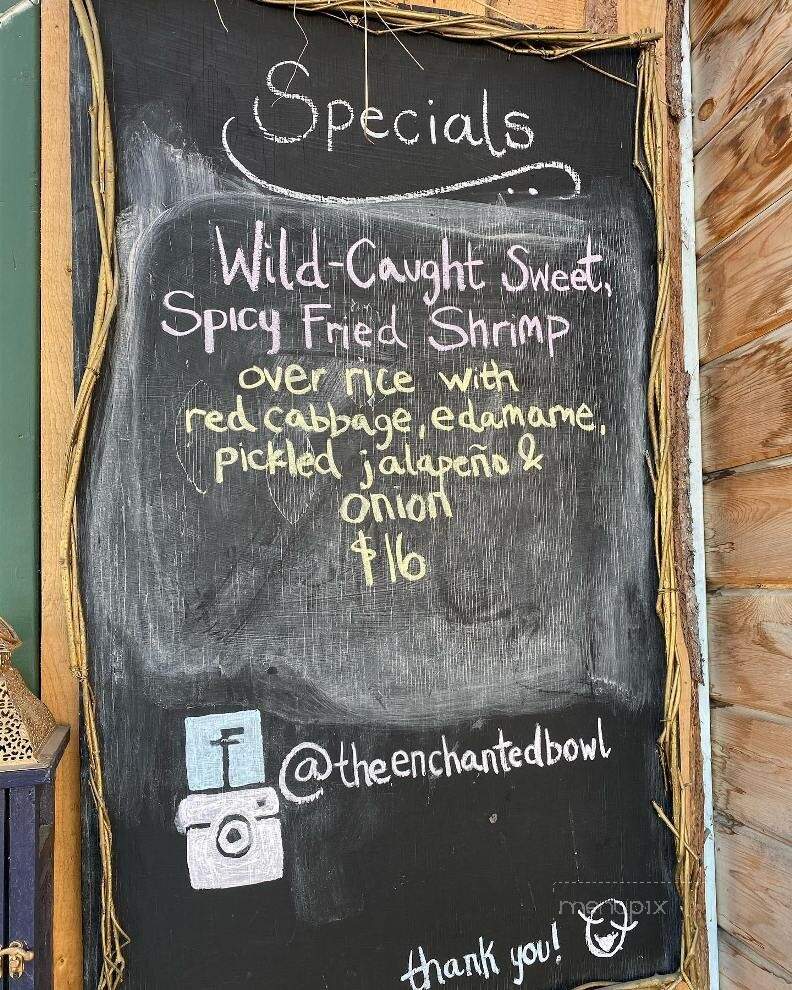 Specials
Wild-Caught Sweet,
Spicy Fried Shrimp
over rice with
red cabbage, edamame,
pickled jalapeño &
onion
$16
f
@theenchantedbowl
menupix
thank you!